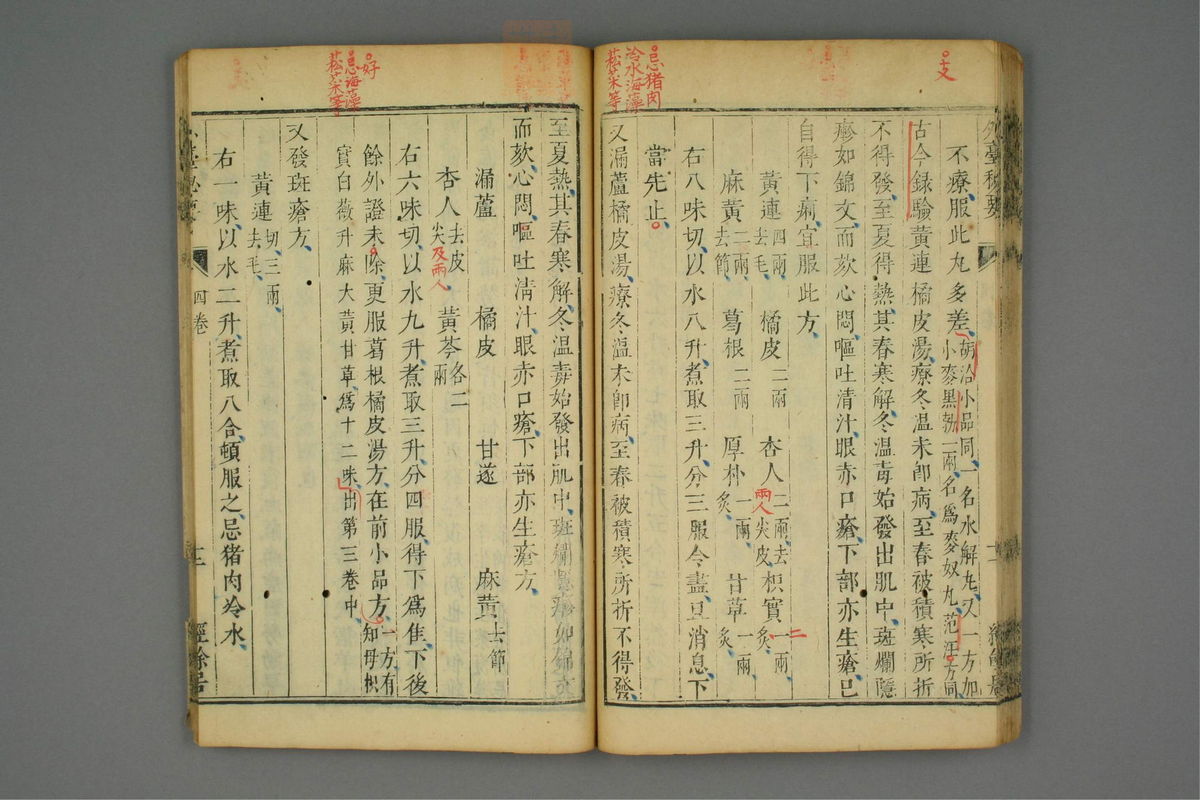 支
忌猪肉
冷水海藻
菘菜等
外臺秘要
不療服此丸多差胡洽小品同一名水解丸又一方加
小麥黑勃一兩名爲麥奴丸范汪方同
古今録驗黃連橘皮湯療冬温未即病至春被積寒所折
不得發至夏得熱其春寒解冬温毒始發出肌中斑爛隱
疹如錦文而欬心悶嘔吐清汁眼赤口瘡下部亦生瘡已
自得下痢宜服此方
黃連四兩去毛 橘皮二兩 杏人二兩去尖皮兩人 枳實一兩炙二
麻黃二兩去節 葛根二兩 厚朴一兩炙 甘草一兩炙
右八味切以水八升煮取三升分三服令盡且消息下
當先止
又漏蘆橘皮湯療冬温未即病至春被積寒所折不得發
好
忌海藻
菘菜等
至夏熱其春寒解冬温毒始發出肌中斑爛隱疹如錦文
而欬心悶嘔吐清汁眼赤口瘡下部亦生瘡方
漏蘆 橘皮 甘遂 麻黃去節
杏人去皮尖及兩人 黃芩各二兩
右六味切以水九升煮取三升分四服得下爲佳下後
餘外證未除更服葛根橘皮湯方在前小品方一方有知母枳
實白薇升麻大黃甘草爲十二味出第三卷中
又發斑瘡方
黃連切三兩去毛
右一味以水二升煮取八合頓服之忌猪肉冷水
四卷
十二
經餘居